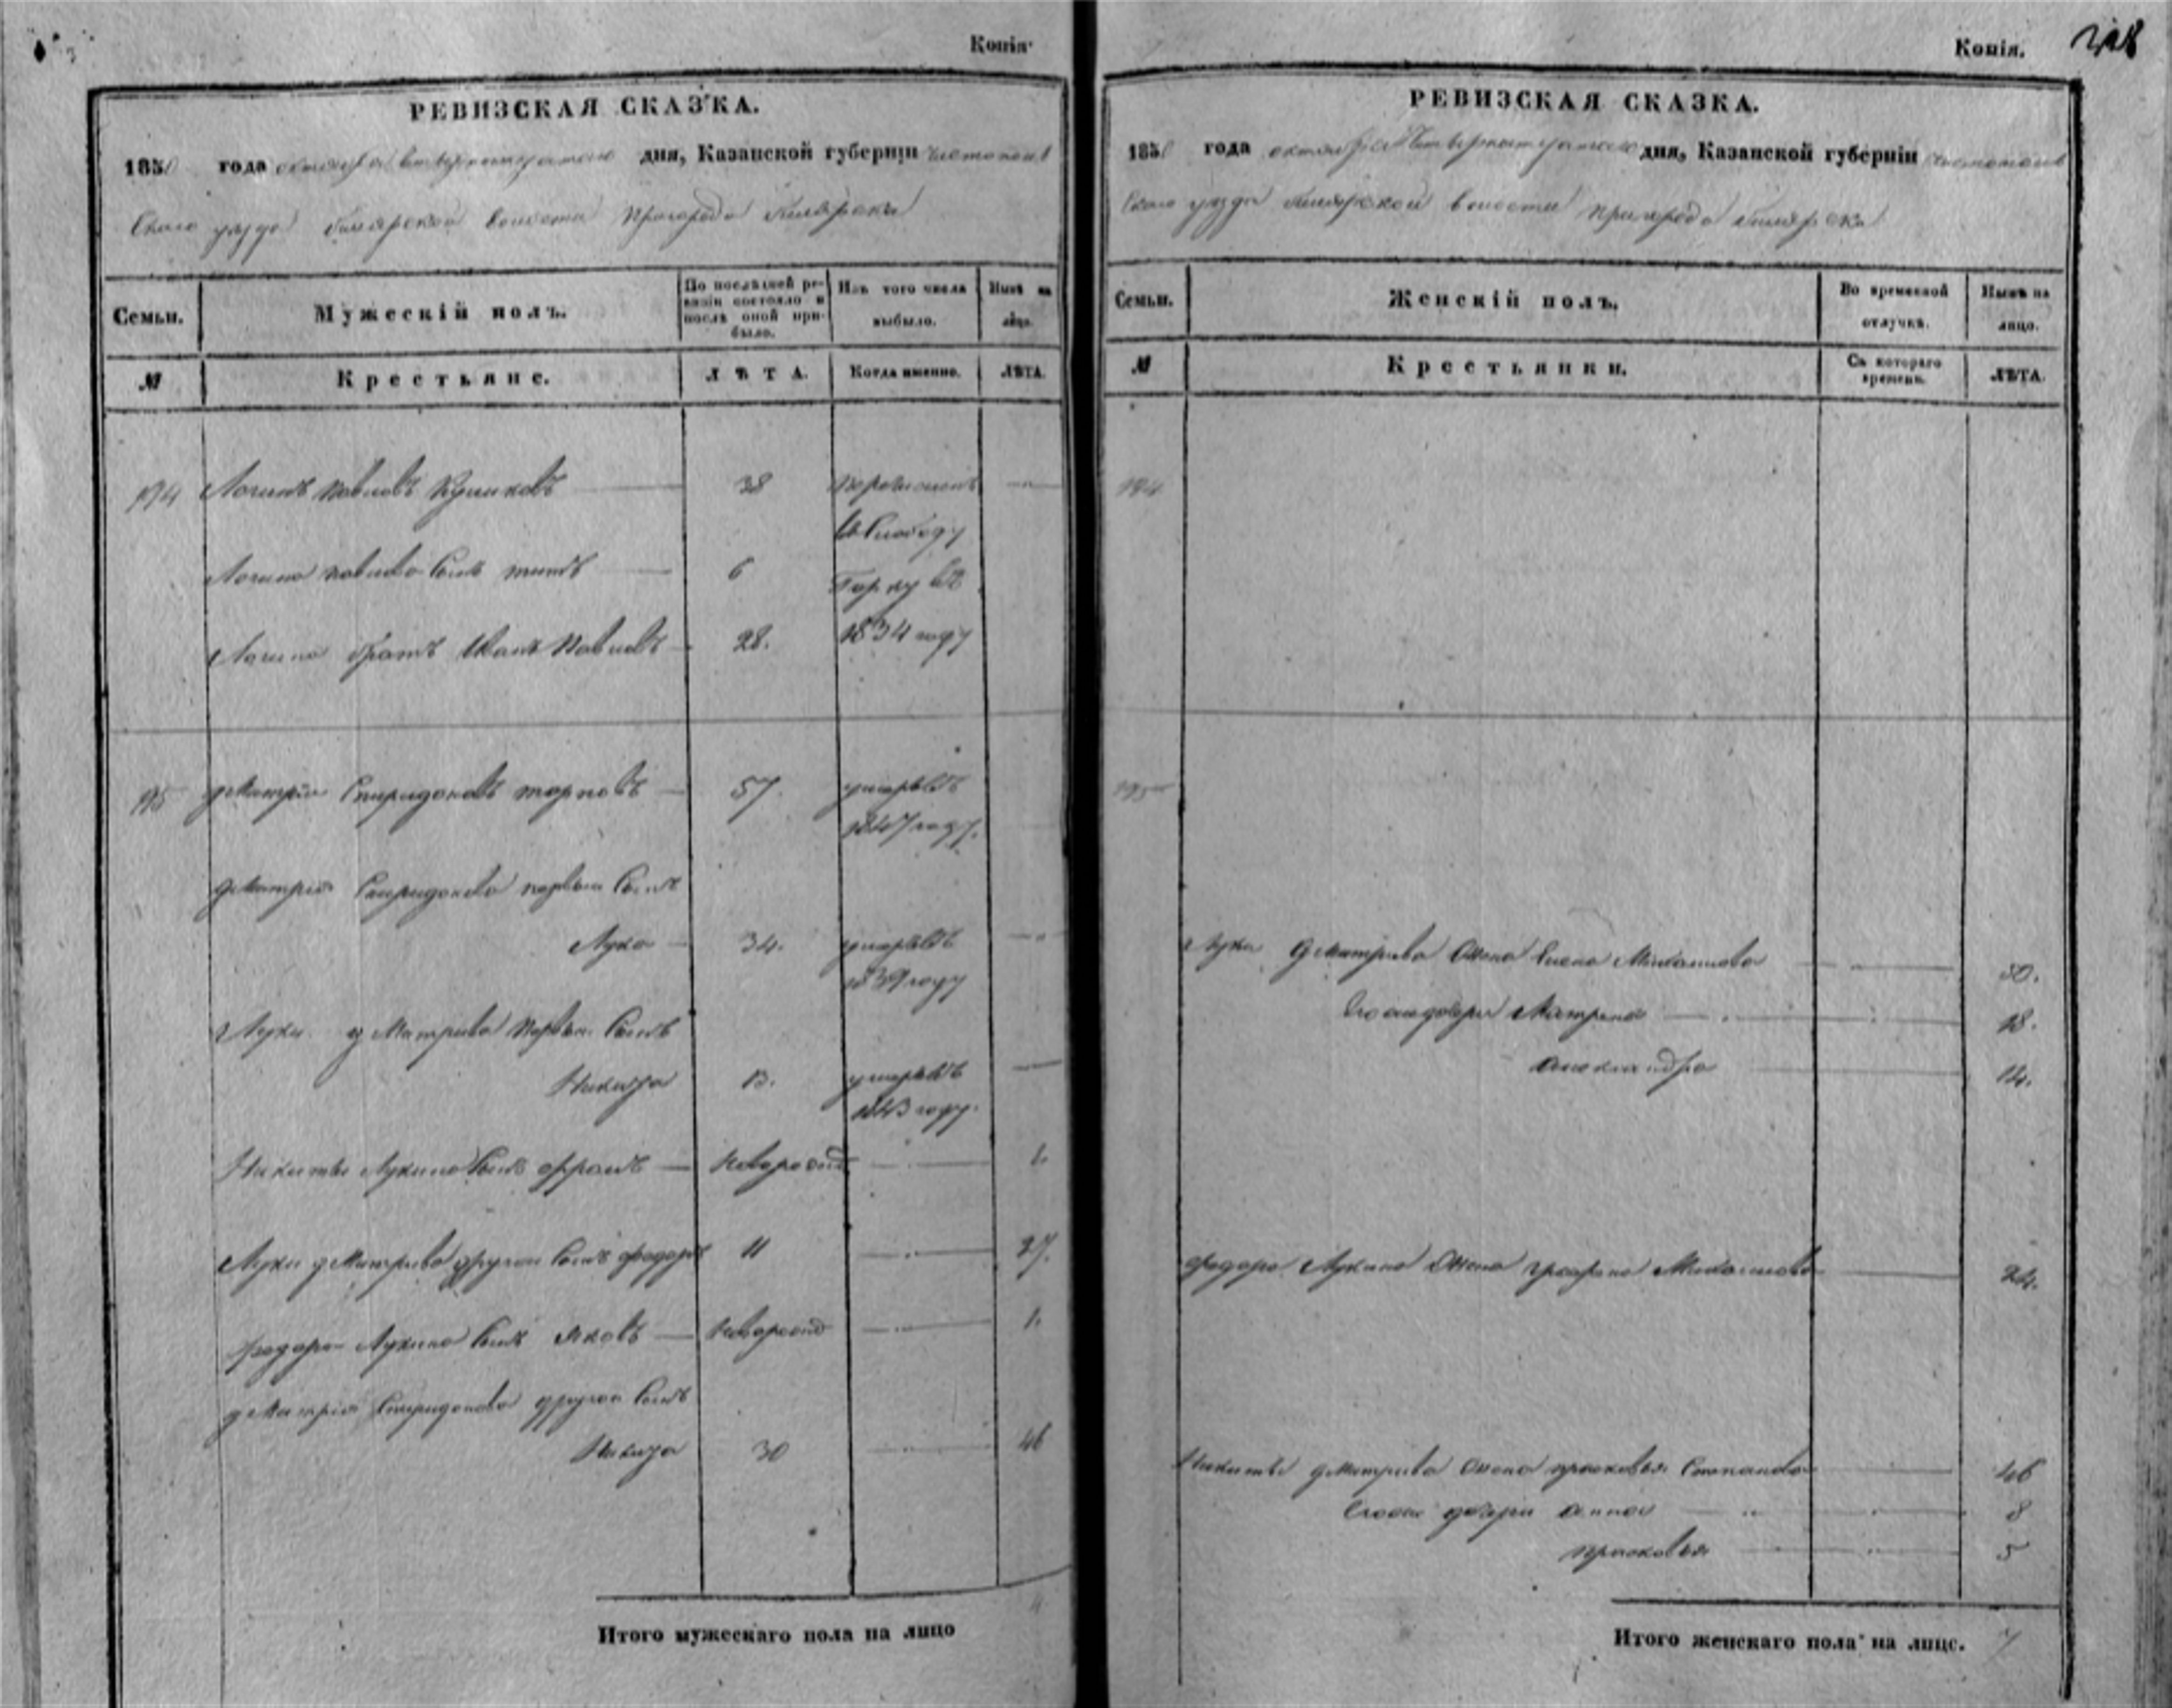 Копія
РЕВИЗСКАЯ СКАЗКА.
1850 года октября дня, Казанской губерніи Чистополь
скаго уезда Билярской волости Пригорода Билярска
Семьи.
Мужескій полъ.
По послѣдней ре-
визіи состояло и
послѣ оной при-
было.
Изъ того числа
выбыло.
Нынѣ на
лицо.
№
Крестьяне.
ЛѢТА.
Когда именно.
ЛѢТА.
194 Логинъ Павловъ Куликовъ 38
въ Слободу
Логина Павлова сынъ титъ 6
Горку въ
Логина братъ Иванъ Павловъ 28. 1834 году
195 дмитрій Спиридоновъ 57. умеръ въ
1847 году.
дмитрія Спиридонова первый сынъ
Лука 34. умеръ въ
1839 году
Луки дмитріева первый сынъ
Никита 13. умеръ въ
1843 году.
Никиты Лукина сынъ новорожд 1.
Луки дмитріева другой сынъ федоръ 11 27.
федора Лукина сынъ Яковъ новорожд 1.
дмитрія Спиридонова другой сынъ
Никита 30 46
4
Итого мужескаго пола на лицо
Копія.
РЕВИЗСКАЯ СКАЗКА.
1850 года октября дня, Казанской губерніи Чистополь
скаго уезда Билярской волости пригорода Билярска
Семьи.
Женскій полъ.
Во временной
отлучкѣ.
Нынѣ на
лицо.
№
Крестьянки.
Съ котораго
времени.
ЛѢТА.
194
195
Луки дмитріева жена Елена Михайлова 50.
его дочери Матрена 18.
александра 14.
федора Лукина жена Михайлова 24.
Никиты дмитріева жена прасковья Степанова 46
его дочери анна 8
прасковья 5
Итого женскаго пола на лицо. 7